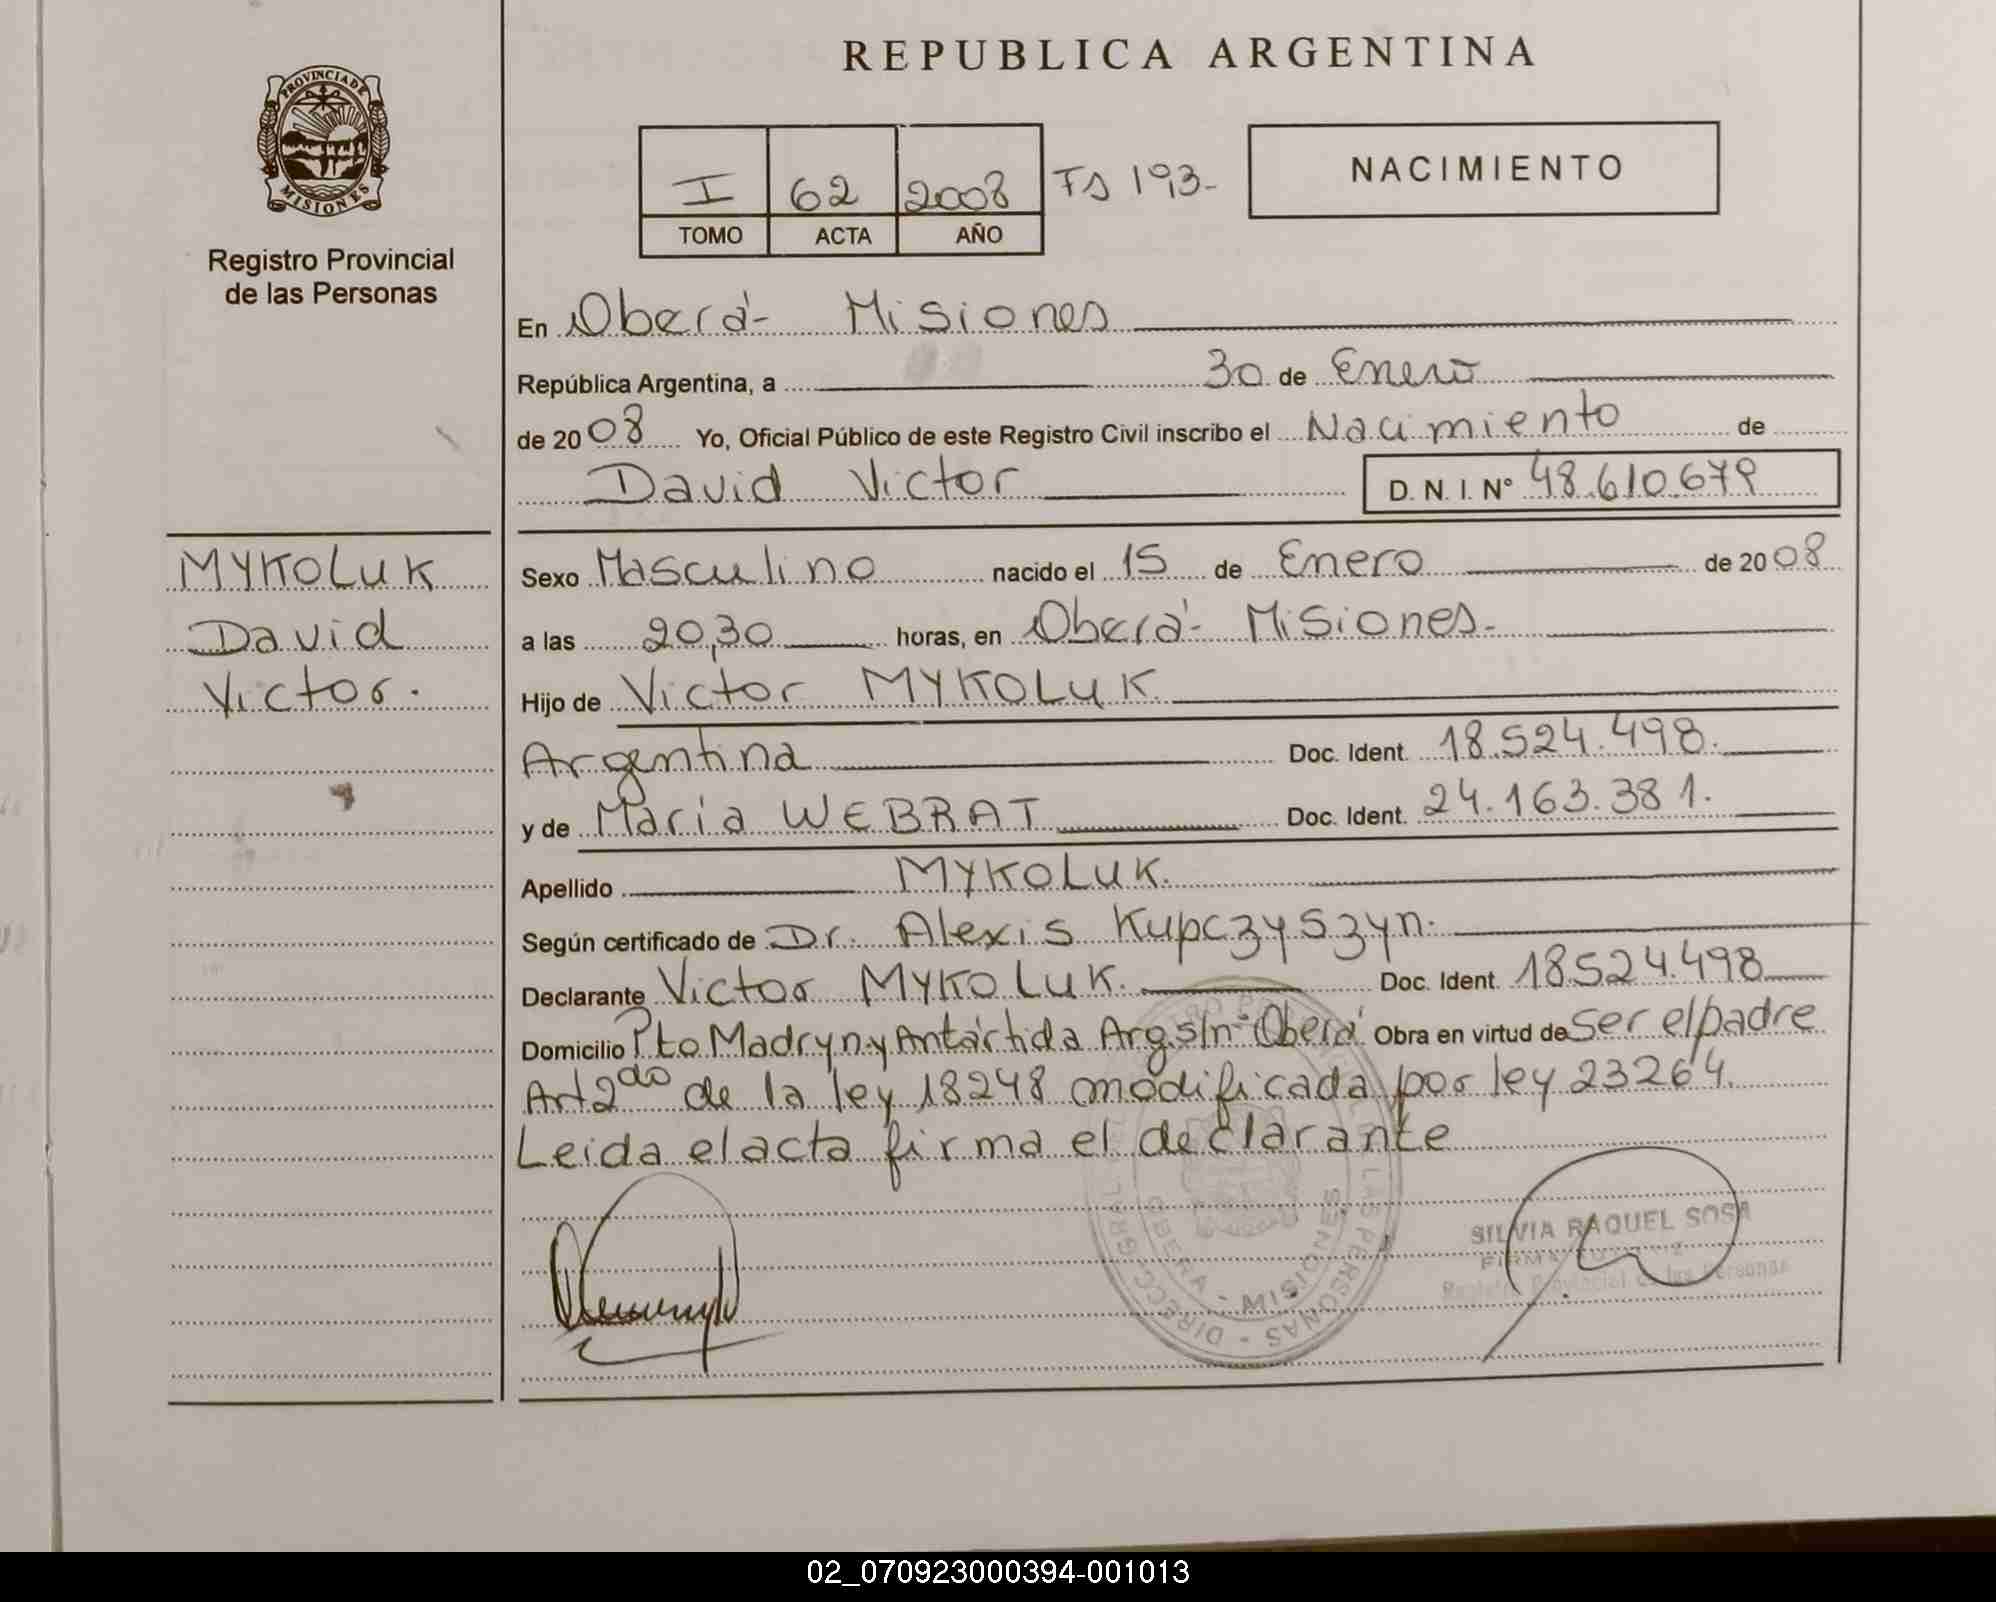 REPUBLICA ARGENTINA
PROVINCIA DE
MISIONES
Registro Provincial
de las Personas
I 62 2008 Fs 193-
TOMO ACTA AÑO
NACIMIENTO
En Oberá- Misiones
República Argentina, a 30 de Enero
de 2008 Yo, Oficial Público de este Registro Civil inscribo el Nacimiento de
David Victor D. N. I. N° 48.610.679
MYKOLUK
David
Victor.
Sexo Masculino nacido el 15 de Enero de 2008
a las 20,30 horas, en Oberá- Misiones-
Hijo de Victor MYKOLUK
Argentina Doc. Ident. 18.524.498.
y de María WEBRAT Doc. Ident. 24.163.381.
Apellido MYKOLUK.
Según certificado de Dr. Alexis Kupczyszyn.
Declarante Victor MYKOLUK. Doc. Ident. 18524.498
Domicilio Pto Madryn y Antártida Arg s/n- Oberá Obra en virtud de ser el padre
Art 2do de la ley 18248 modificada por ley 23264.
Leida el acta firma el declarante
SILVIA RAQUEL SOSA
Registro Provincial de las Personas
OBERA - MISIONES
02_070923000394-001013